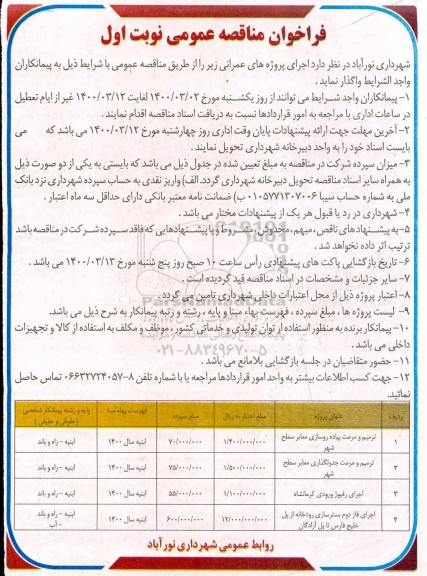 فراخوان مناقصه عمومی نوبت اول
شهرداری نورآباد در نظر دارد اجرای پروژه های عمرانی زیر را از طریق مناقصه عمومی با شرایط ذیل به پیمانکاران
واجد الشرایط واگذار نماید .
۱- پیمانکاران واجد شـرایط می توانند از روز یکشـنبه مورخ ۱۴۰۰/۰۳/۰۲ لغایت ۱۴۰۰/۰۳/۱۲ غیر از ایام تعطیل
در ساعات اداری با مراجعه به امور قراردادها نسبت به دریافت اسناد مناقصه اقدام نمایند .
۲- آخرین مهلت جهت ارائه پیشنهادات پایان وقت اداری روز چهارشنبه مورخ ۱۴۰۰/۰۳/۱۲ می باشد که می
بایست اسناد خود را به واحد دبیرخانه شهرداری تحویل نمایند .
۳- میزان سپرده شرکت در مناقصه به مبلغ تعیین شده در جدول ذیل می باشد که بایستی به یکی از دو صورت ذیل
به همراه سایر اسناد مناقصه تحویل دبیرخانه شهرداری گردد. الف) واریز نقدی به حساب سپرده شهرداری نزد بانک
ملی به شماره حساب سیبا ۰۱۰۵۷۷۱۳۰۷۰۰۶ ب) ضمانت نامه معتبر بانکی دارای حداقل سه ماه اعتبار .
۴- شهرداری در رد یا قبول هر یک از پیشنهادات مختار می باشد .
۵- به پیشنهادهای ناقص ، مبهم ، مخدوش ، مشروط و یا پیشنهادهایی که فاقد سپرده شرکت در مناقصه باشد
ترتیب اثر داده نخواهد شد .
۶- تاریخ بازگشایی پاکت های پیشنهادی رأس ساعت ۱۰ صبح روز پنج شنبه مورخ ۱۴۰۰/۰۳/۱۳ می باشد .
۷- سایر جزئیات و مشخصات در اسناد مناقصه قید گردیده است .
۸- اعتبار پروژه ذیل از محل اعتبارات داخلی شهرداری تامین می گردد .
۹- لیست پروژه ها ، مبلغ سپرده ، فهرست بهاء مبنا و پایه ، رشته و رتبه پیمانکار به شرح ذیل می باشد.
۱۰- پیمانکار برنده به منظور استفاده از توان تولیدی و خدماتی کشور ، موظف و مکلف به استفاده از کالا و تجهیزات
داخلی می باشد .
۱۱- حضور متقاضیان در جلسه بازگشایی بلامانع می باشد .
۱۲- جهت کسب اطلاعات بیشتر به واحد امور قراردادها مراجعه یا با شماره تلفن ۸-۰۶۶۳۲۷۲۴۰۵۷ تماس حاصل
نمائید.
ردیف عنوان پروژه مبلغ اعتبار به ریال مبلغ سپرده فهرست بهاء مبنا پایه و رشته پیمانکار شخصی (حقوقی و حقیقی)
۱ ترمیم و مرمت پیاده روسازی معابر سطح شهر ۱/۴۰۰/۰۰۰/۰۰۰ ۷۰/۰۰۰/۰۰۰ ابنیه سال ۱۴۰۰ ابنیه - راه و باند
۲ ترمیم و مرمت جدولگذاری معابر سطح شهر ۱/۵۰۰/۰۰۰/۰۰۰ ۷۵/۰۰۰/۰۰۰ ابنیه سال ۱۴۰۰ ابنیه - راه و باند
۳ اجرای رفیوژ ورودی کرمانشاه ۱/۱۰۰/۰۰۰/۰۰۰ ۵۵/۰۰۰/۰۰۰ ابنیه سال ۱۴۰۰ ابنیه - راه و باند
۴ اجرای فاز دوم بسترسازی رودخانه از پل خلیج فارس تا پل آزادگان ۱۲/۰۰۰/۰۰۰/۰۰۰ ۶۰۰/۰۰۰/۰۰۰ ابنیه سال ۱۴۰۰ ابنیه - راه و باند - آب
روابط عمومی شهرداری نورآباد
۰۲۱-۸۸۳۴۹۶۷۰-۵